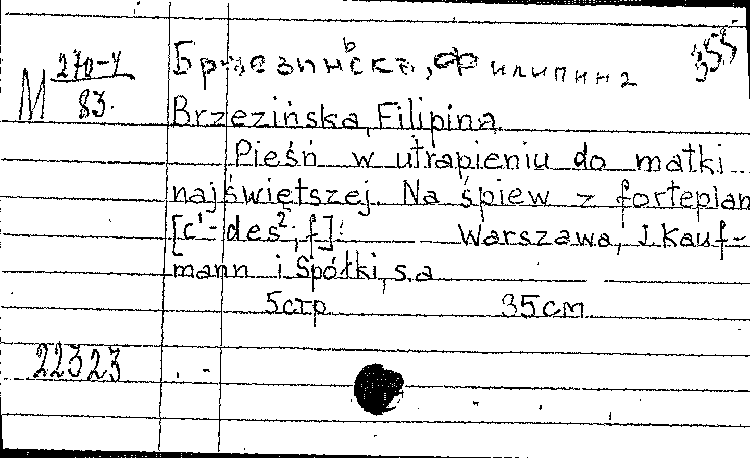 М 270-У / 83.
Бржезиньска, Филипина
355
Brzezińska, Filipina.
Pieśń w utrapieniu do matki
najświętszej. Na śpiew z fortepian
[c¹-des²; f]. Warszawa, J. Kauf-
mann i Spółki, s.a
5стр 35см
22323